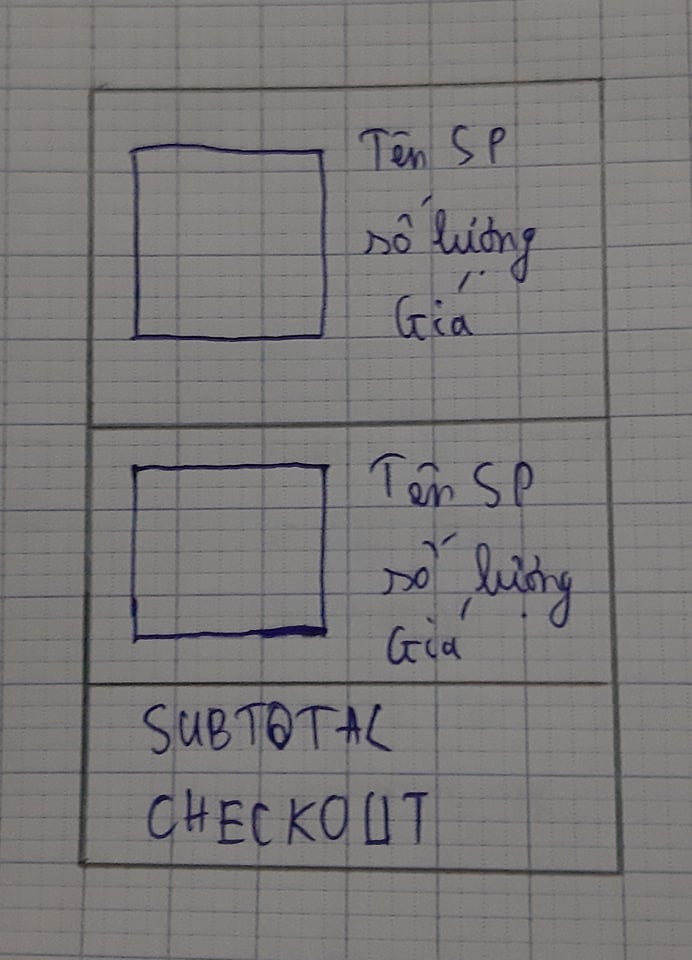 Tên SP
Số lượng
Giá
Tên SP
Số lượng
Giá
SUBTOTAL
CHECKOUT